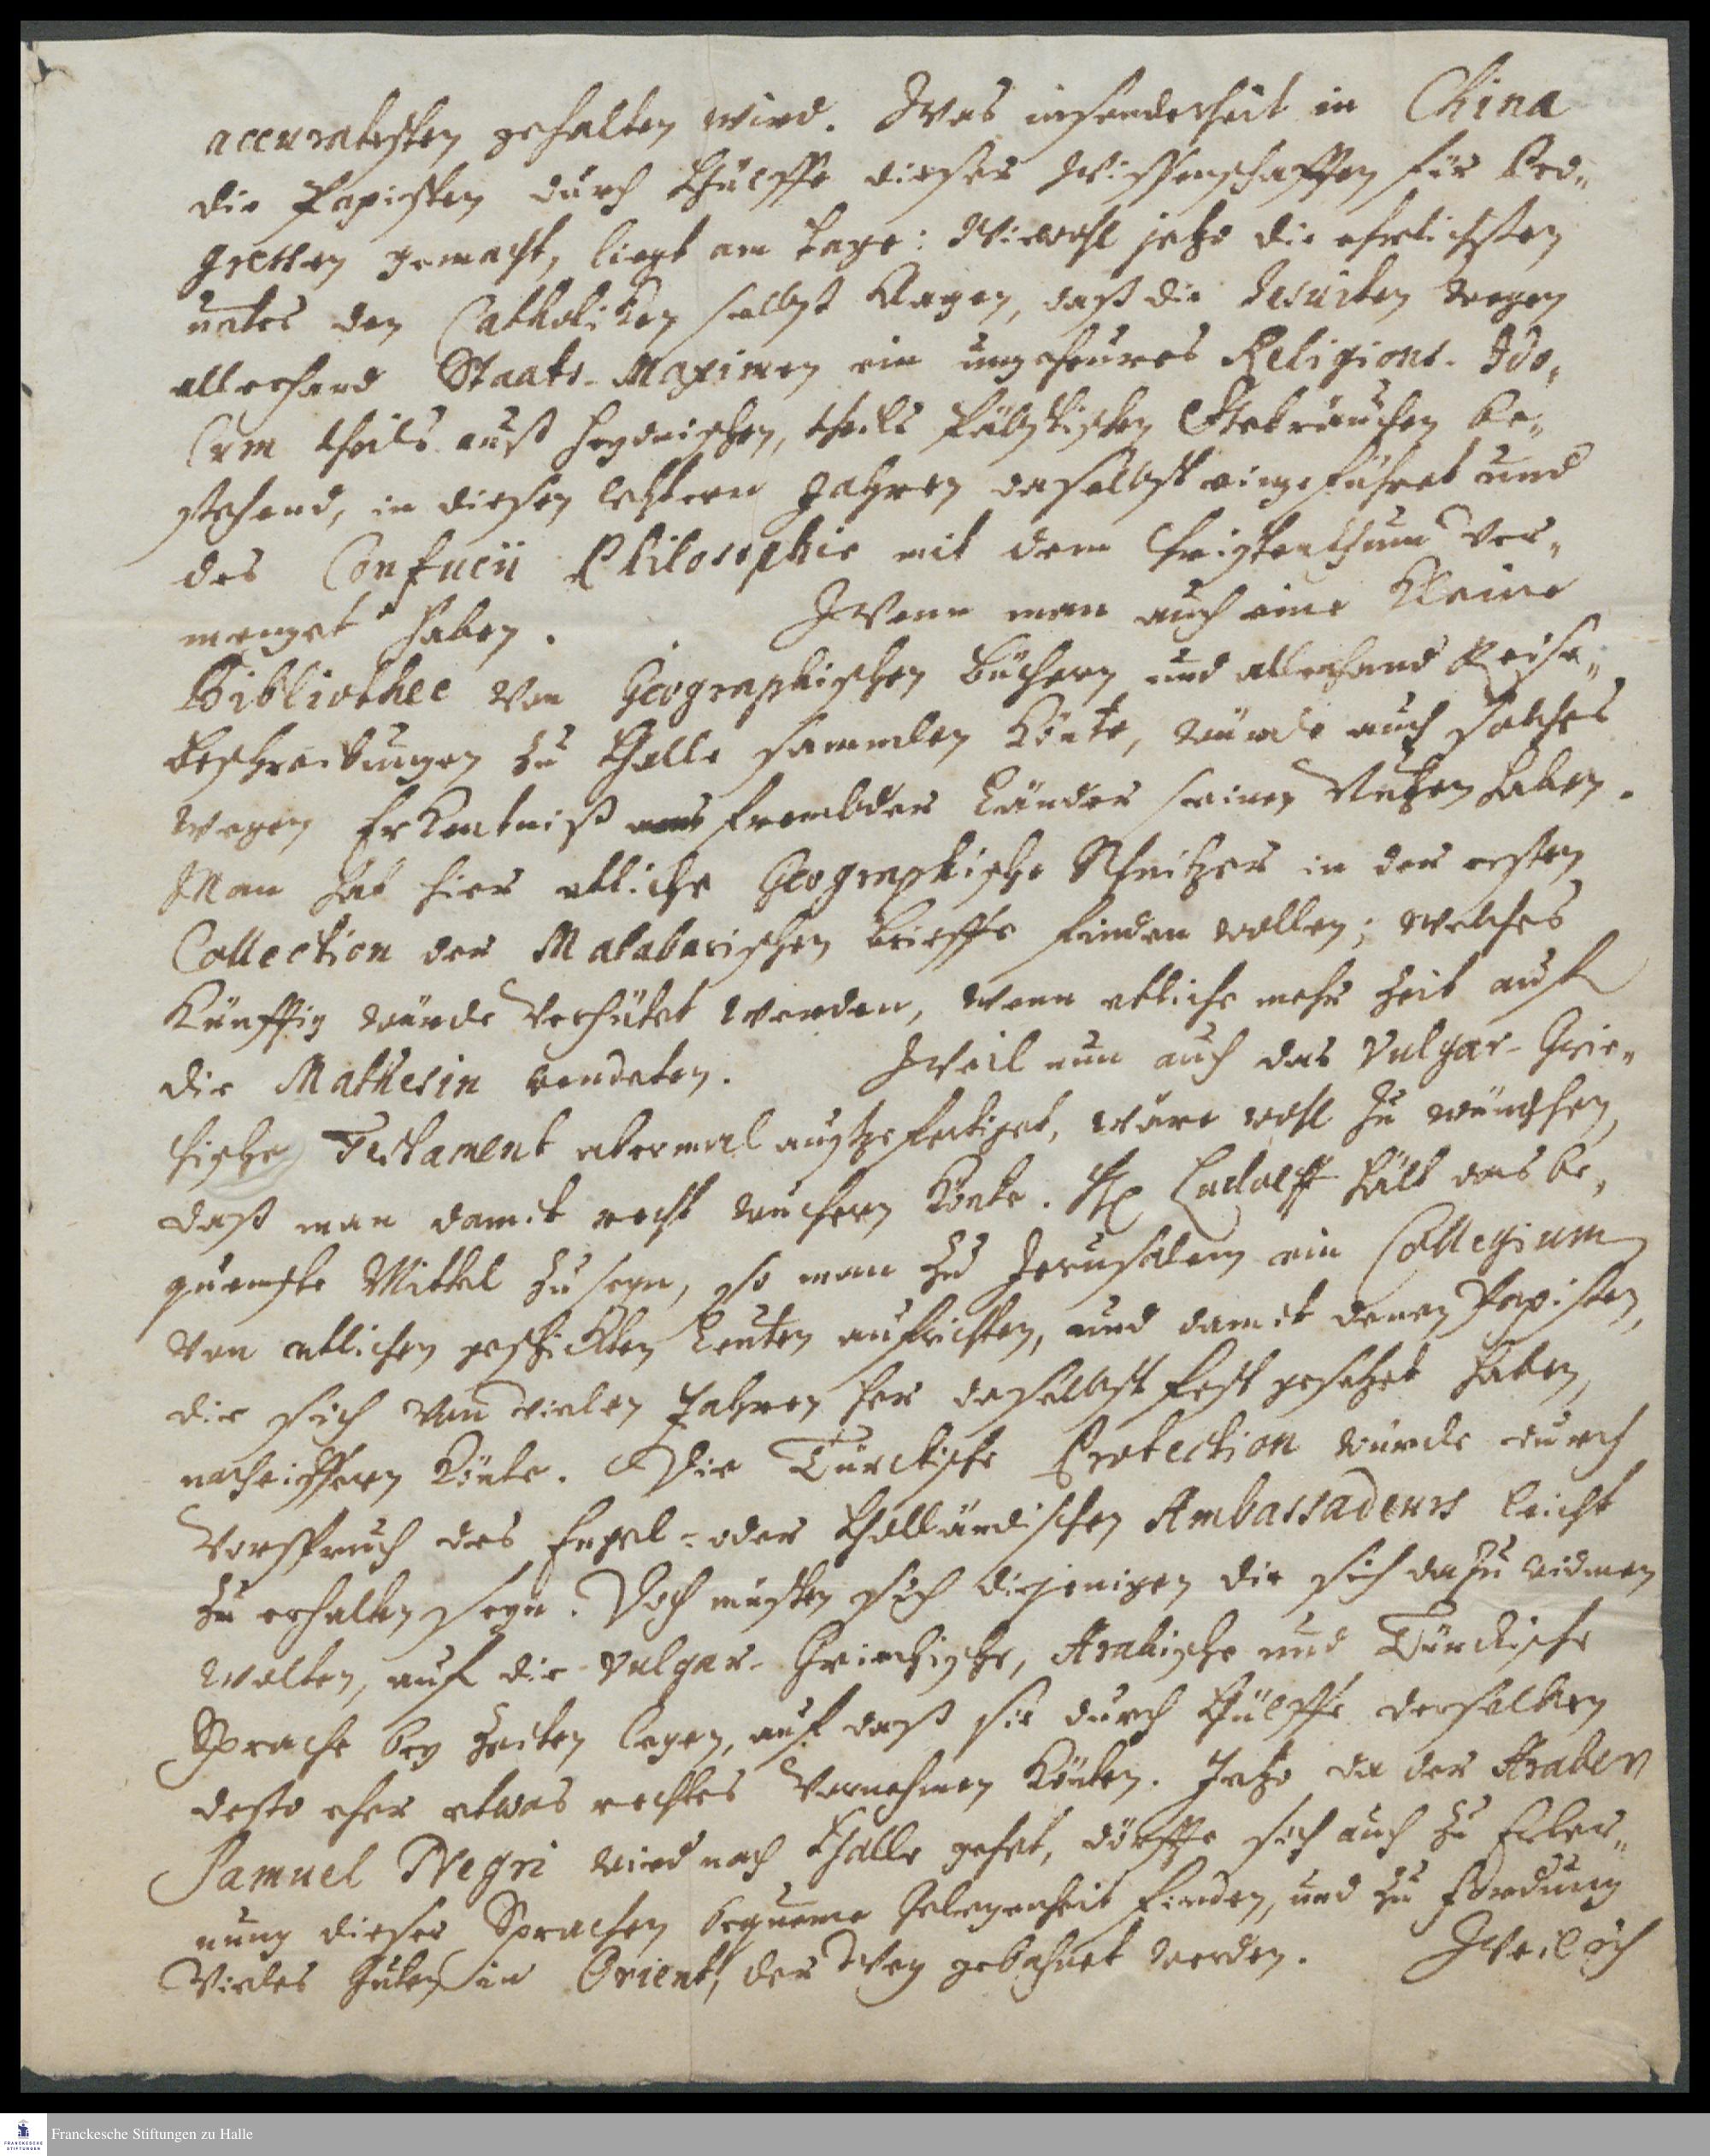 accuratesten gehalten wird. Was insonderheit in China
die Papisten durch Hülffe dieser Wissenschafften für Pro-
gressen gemacht, liegt am tage: Wiewohl jetzo die ehrlichsten
unter den Catholiken selbst klagen, daß die Jesuiten wegen
allerhand Staats-Maximen ein ungeheures Religions-Ido-
lum theils auß heydnischen, theils Päbstischen Gebräuchen be-
stehend, in diesen letztern Jahren daselbst eingeführet und
des Confucii Philosophie mit dem Christenthum ver-
menget haben. Wenn man auch eine kleine
Bibliothec von Geographischen Büchern und allerhand Reise-
beschreibungen zu Halle sammlen könte, würde auch solches
wegen Erkentniß frembder Länder seinen Nutzen haben.
Man hat hier etliche Geographische Schnitzer in der ersten
Collection der Malabarischen brieffe finden wollen; welches
künfftig würde verhütet werden, wenn etliche mehr Zeit auf
die Mathesin wendeten. Weil nun auch das vulgar-Grie-
chische Testament abermal außgefertiget, wäre wohl zu wünschen,
daß man damit recht wuchern könte. H Ludolff hält das be-
quemste Mittel zu seyn, so man zu Jerusalem ein Collegium
von etlichen geschickten Leuten aufrichten, und damit denen Papisten,
die sich von vielen Jahren her daselbst fest gesetzet haben,
nacheiffern könte. Die Türckische Protection würde durch
Vorspruch des Engel- oder Holländischen Ambassadeurs leicht
zu erhalten seyn. Doch müsten sich diejenigen die sich dazu widmen
wolten, auf die vulgar-Griechische, Arabische und Türckische
Sprache bey Zeiten legen, auf daß sie durch Hülffe derselben
desto eher etwas rechtes vornehmen könten. Jetzo da der Araber
Samuel Negri wird nach Halle gehet, dörffte sich auch zu Erler-
nung dieser Sprachen bequeme Gelegenheit finden, und zu fordrung
vieles Guten in Orient, der Weg gebahnet werden. Weil ich
Franckesche Stiftungen zu Halle
FRANCKESCHE
STIFTUNGEN